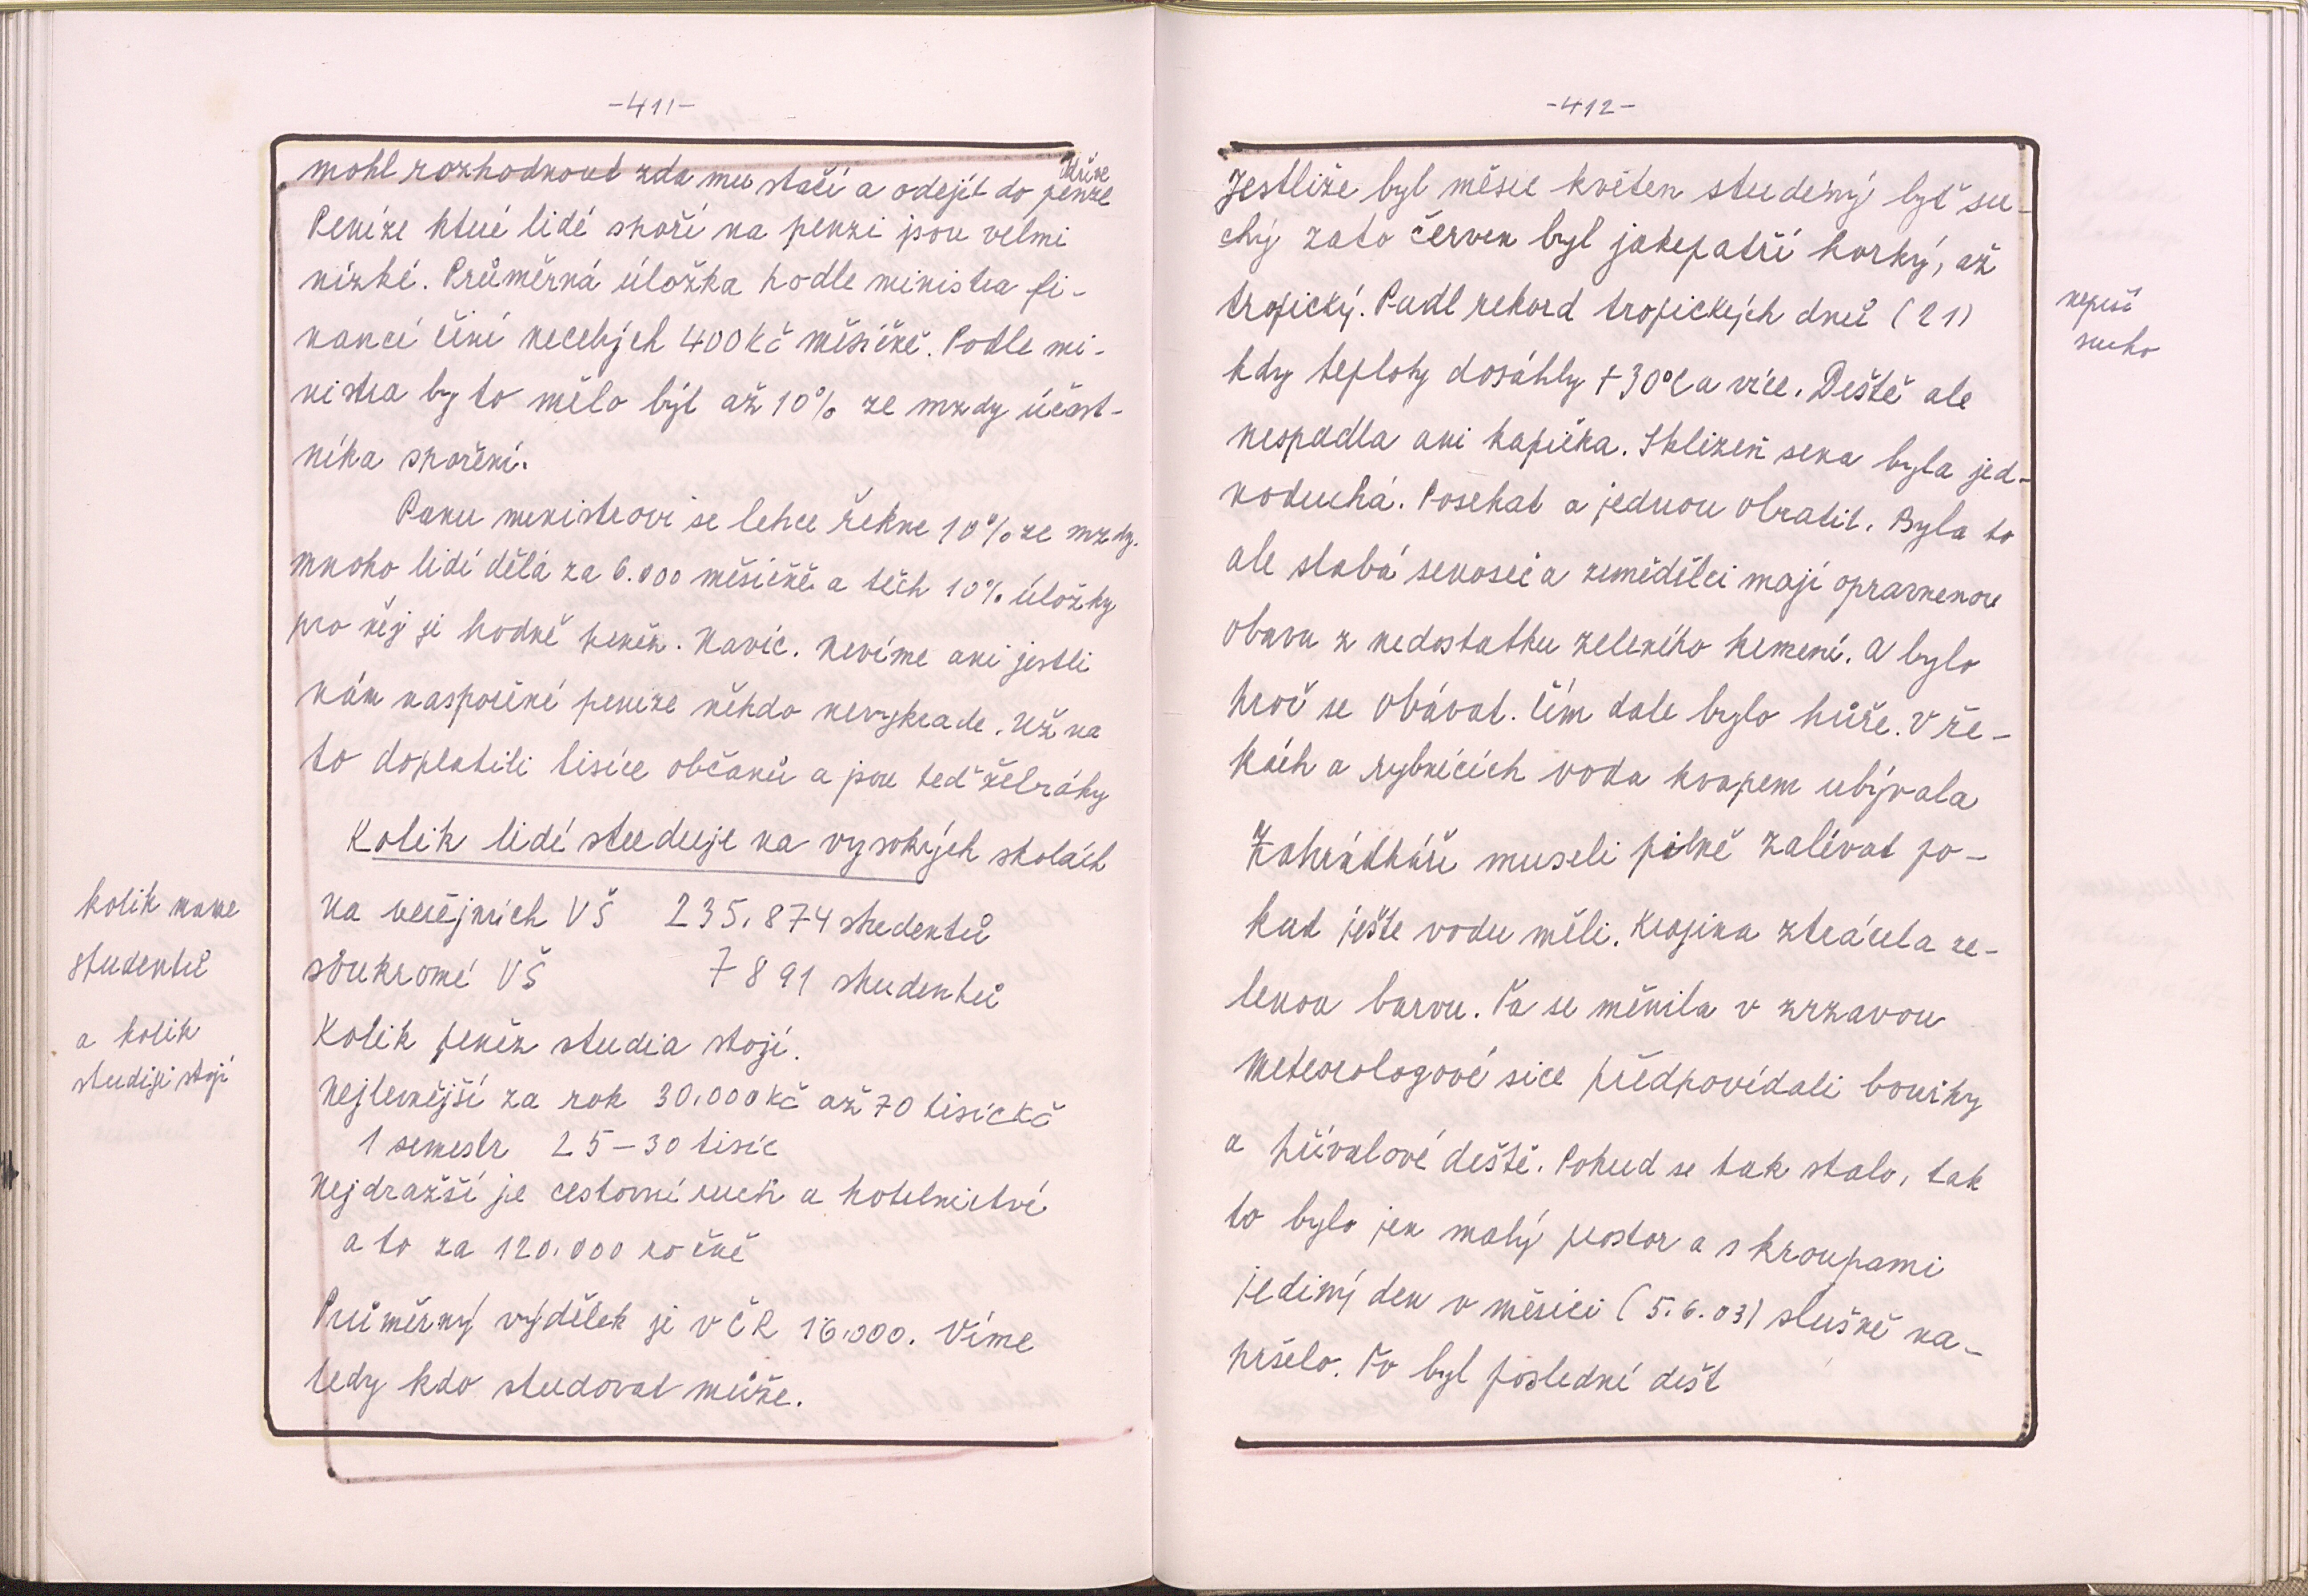 -411-
mohl rozhodnout zda mu stačí a odejít do penze
dříve
Peníze které lidé spoří na penzi jsou velmi
nízké. Průměrná úložka podle ministra fi-
nancí činí necelých 400 Kč měsíčně. Podle mi-
nistra by to mělo být až 10% ze mzdy účast-
níka spoření.
Panu ministrovi se lehce řekne 10% ze mzdy.
mnoho lidí dělá za 6.000 měsíčně a těch 10% úložky
pro něj je hodně peněz. Navíc. nevíme ani jestli
nám naspořené peníze někdo nevykrade. Už na
to doplatili tisíce občanů a jsou teď žebráky
Kolik lidí studuje na vysokých školách
kolik máme
studentů
a kolik
studije stojí
Na veřejných VŠ 235.874 studentů
soukromé VŠ 7891 studentů
Kolik peněz studia stojí.
Nejlevnější za rok 30.000 Kč až 70 tisíc Kč
1 semestr 25-30 tisíc
Nejdražší je cestovní ruch a hotelnictví
a to za 120.000 ročně
Průměrný výdělek je v ČR 16.000. Víme
tedy kdo studovat může.
-412-
Jestliže byl měsíc květen studený byť su-
chý zato červen byl jakepatří horký, až
tropický. Padl rekord tropických dnů (21)
nepříč
sucho
kdy teploty dosáhly +30°C a více. Deště ale
nespadla ani kapička. Sklizeň sena byla jed-
noduchá. Posekat a jednou obratit. Byla to
ale slabá senoseč a zemědělci mají opravnenou
obavu z nedostatku zeleného kemení. A bylo
proč se obávat. Čím dále bylo hůře. V ře-
kách a rybnících voda kvapem ubývala
Zahrádkáři museli pilně zalévat po-
kud ješte vodu měli. Krajina ztrácela ze-
lenou barvu. Ta se měnila v zrzavou
Meteorologové sice předpovídali bouřky
a přívalové deště. Pokud se tak stalo, tak
to bylo jen malý prostor a s kroupami
jediný den v měsíci (5.6.03) slušně na-
pršelo. To byl poslední dešt